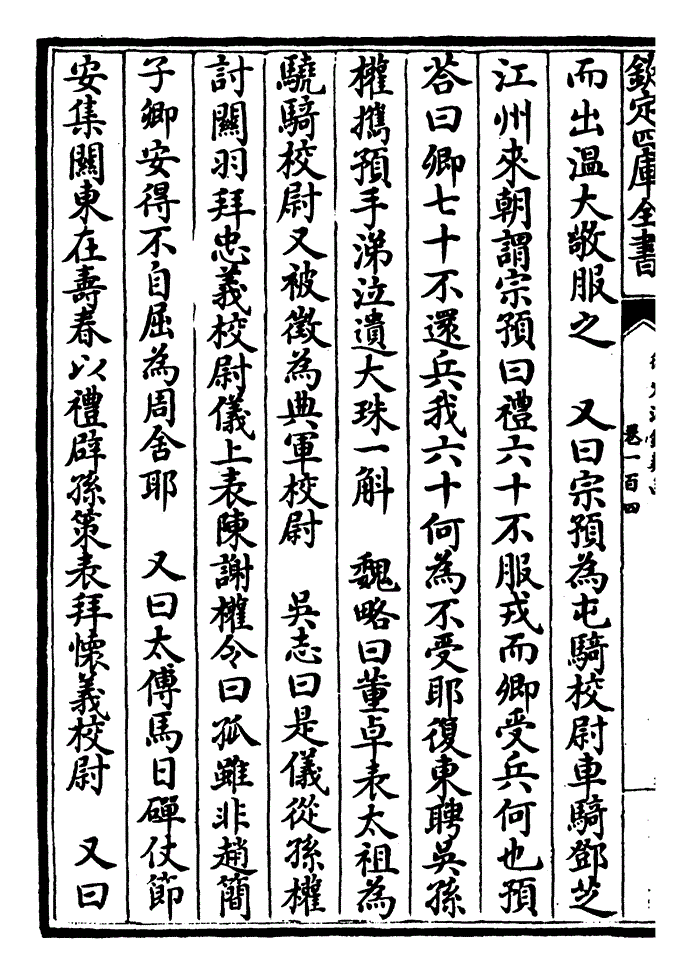 欽定四庫全書
卷一百四
而出温大敬服之　又曰宗預為屯騎校尉車騎鄧芝
江州來朝謂宗預曰禮六十不服戎而卿受兵何也預
荅曰卿七十不還兵我六十何為不受耶復東聘吳孫
權擕預手涕泣遺大珠一斛　魏略曰董卓表太祖為
驍騎校尉又被徵為典軍校尉　吳志曰是儀從孫權
討關羽拜忠義校尉儀上表陳謝權令曰孤雖非趙簡
子卿安得不自屈為周舍耶　又曰太傅馬日磾仗節
安集關東在壽春以禮辟孫策表拜懷義校尉　又曰